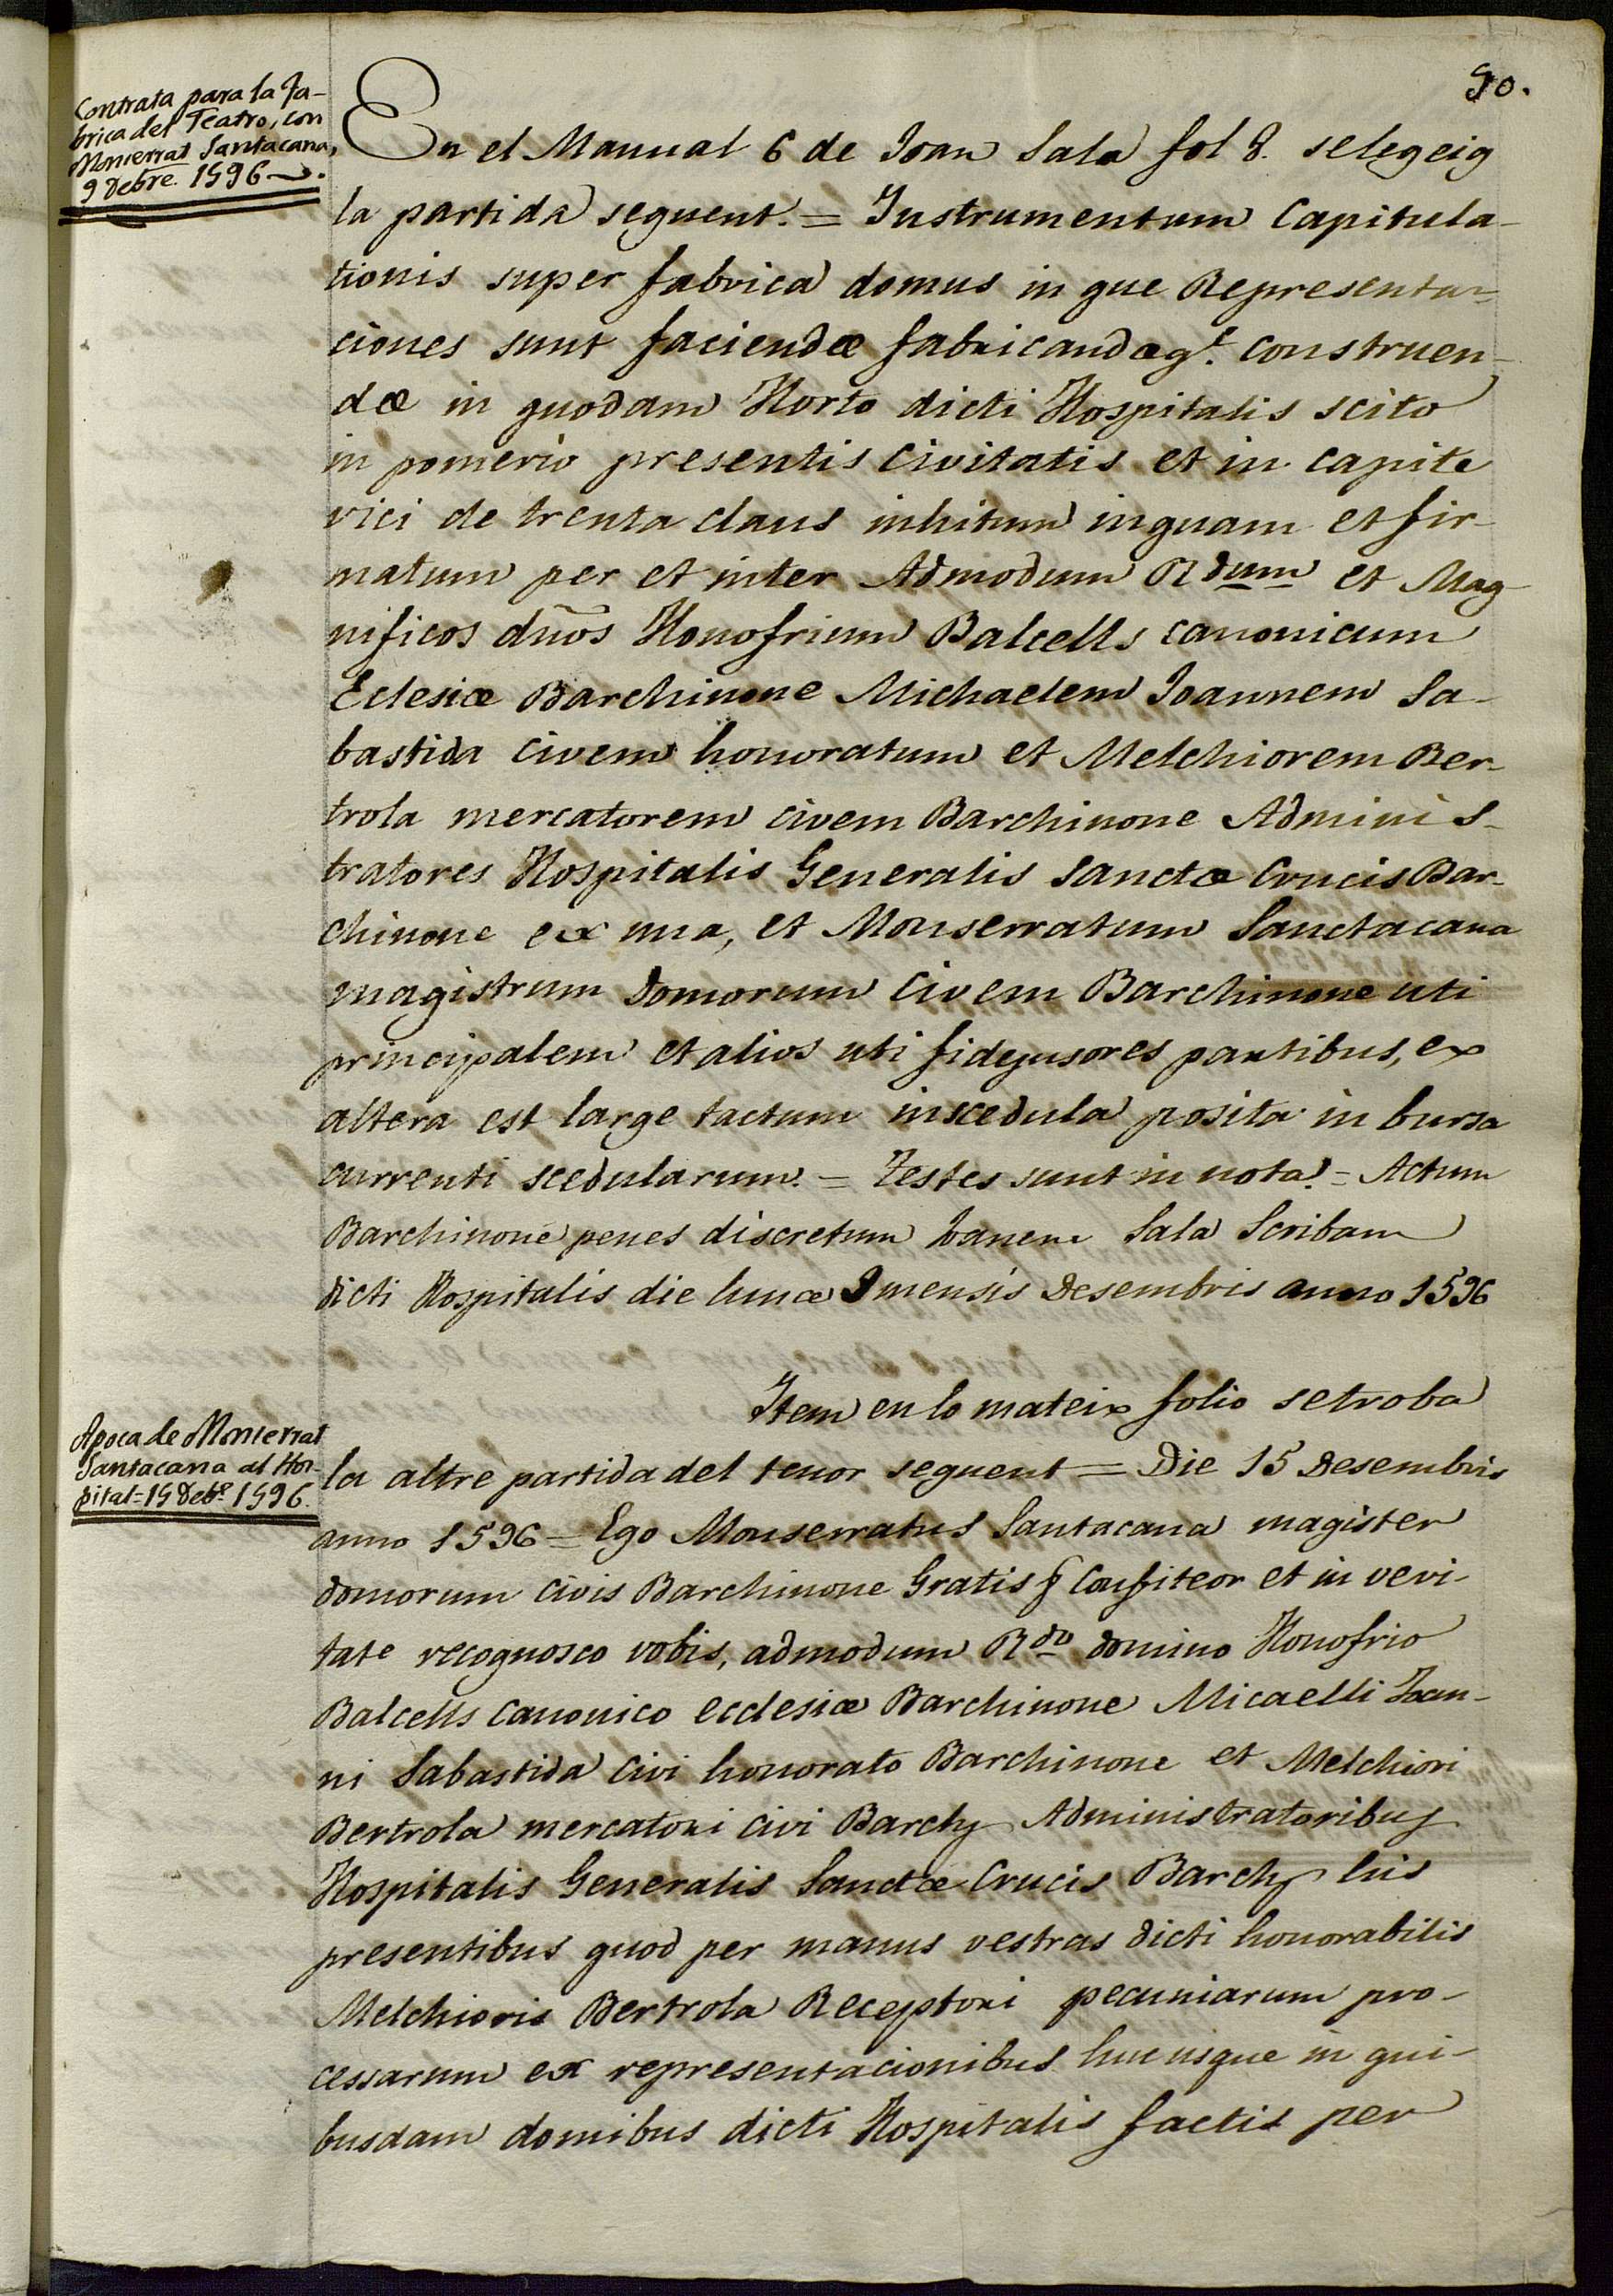 90.
Contrata para la Fa-
brica del Teatro, con
Monserrat Santacana,
9 Debre. 1596.
En el Manual 6 de Joan Sala fol 8. se legeig
la partida seguent. = Instrumentum Capitula-
tionis super fabrica domus in que Representa-
ciones sunt faciendæ fabricandæqe. construen-
dæ in quodam Horto dicti Hospitalis scito
in pomerio presentis Civitatis et in capite
vici de trenta claus inhitum inquam et fir-
matum per et inter Admodum Rdum et Mag-
nificos dños Honofrium Balcells canonicum
Eclesiæ Barchinone Michaelem Joannem Sa-
bastida Civem honoratum et Melchiorem Ber-
trola mercatorem civem Barchinone Adminis-
tratores Hospitalis Generalis Sanctæ Crucis Bar-
chinone ex una, et Monserratum Sanctacana
magistrum domorum Civem Barchinone uti
principalem et alios uti fidejusores partibus, ex
altera est large tactum in scedula posita in bursa
currenti scedularum. = Testes sunt in nota. = Actum
Barchinone penes discretum Joanem Sala Scribam
dicti Hospitalis die lunæ 9 mensis Desembris anno 1596
Item en lo mateix folio se troba
Apoca de Monserrat
Santacana al Hos-
pital = 15 Debe. 1596.
la altre partida del tenor seguent = Die 15 Desembris
anno 1596 = Ego Monserratus Santacana magister
domorum civis Barchinone Gratis & Confiteor et in veri-
tate recognosco vobis, admodum Rdo domino Honofrio
Balcells canonico ecclesiæ Barchinone Micaelli Joan-
ni Sabastida Civi honorato Barchinone et Melchiori
Bertrola mercatori civi Barchs Administratoribus
Hospitalis Generalis Sanctæ Crucis Barchs his
presentibus quod per manus vestras dicti honorabilis
Melchioris Bertrola Receptori pecuniarum pro-
cessarum ex representacionibus hucusque in qui-
busdam domibus dicti Hospitalis factis per